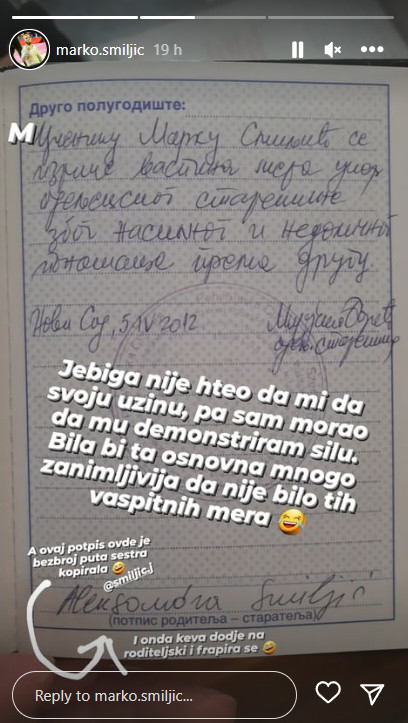 marko.smiljic 19 h
Друго полугодиште:
Ученику Марку Смиљићу се
изриче васпитна мера укор
одељенског старешине
због насилног и недоличног
понашања према другу.
Нови Сад, 5.IV 2012.
одељ. старешина
Jebiga nije hteo da mi da
svoju uzinu, pa sam morao
da mu demonstriram silu.
Bila bi ta osnovna mnogo
zanimljivija da nije bilo tih
vaspitnih mera 😂
A ovaj potpis ovde je
bezbroj puta sestra
kopirala 🤣
@smiljic.j
Aleksandra Smiljić
(потпис родитеља – старатеља)
I onda keva dodje na
roditeljski i frapira se 🤣
Reply to marko.smiljic...